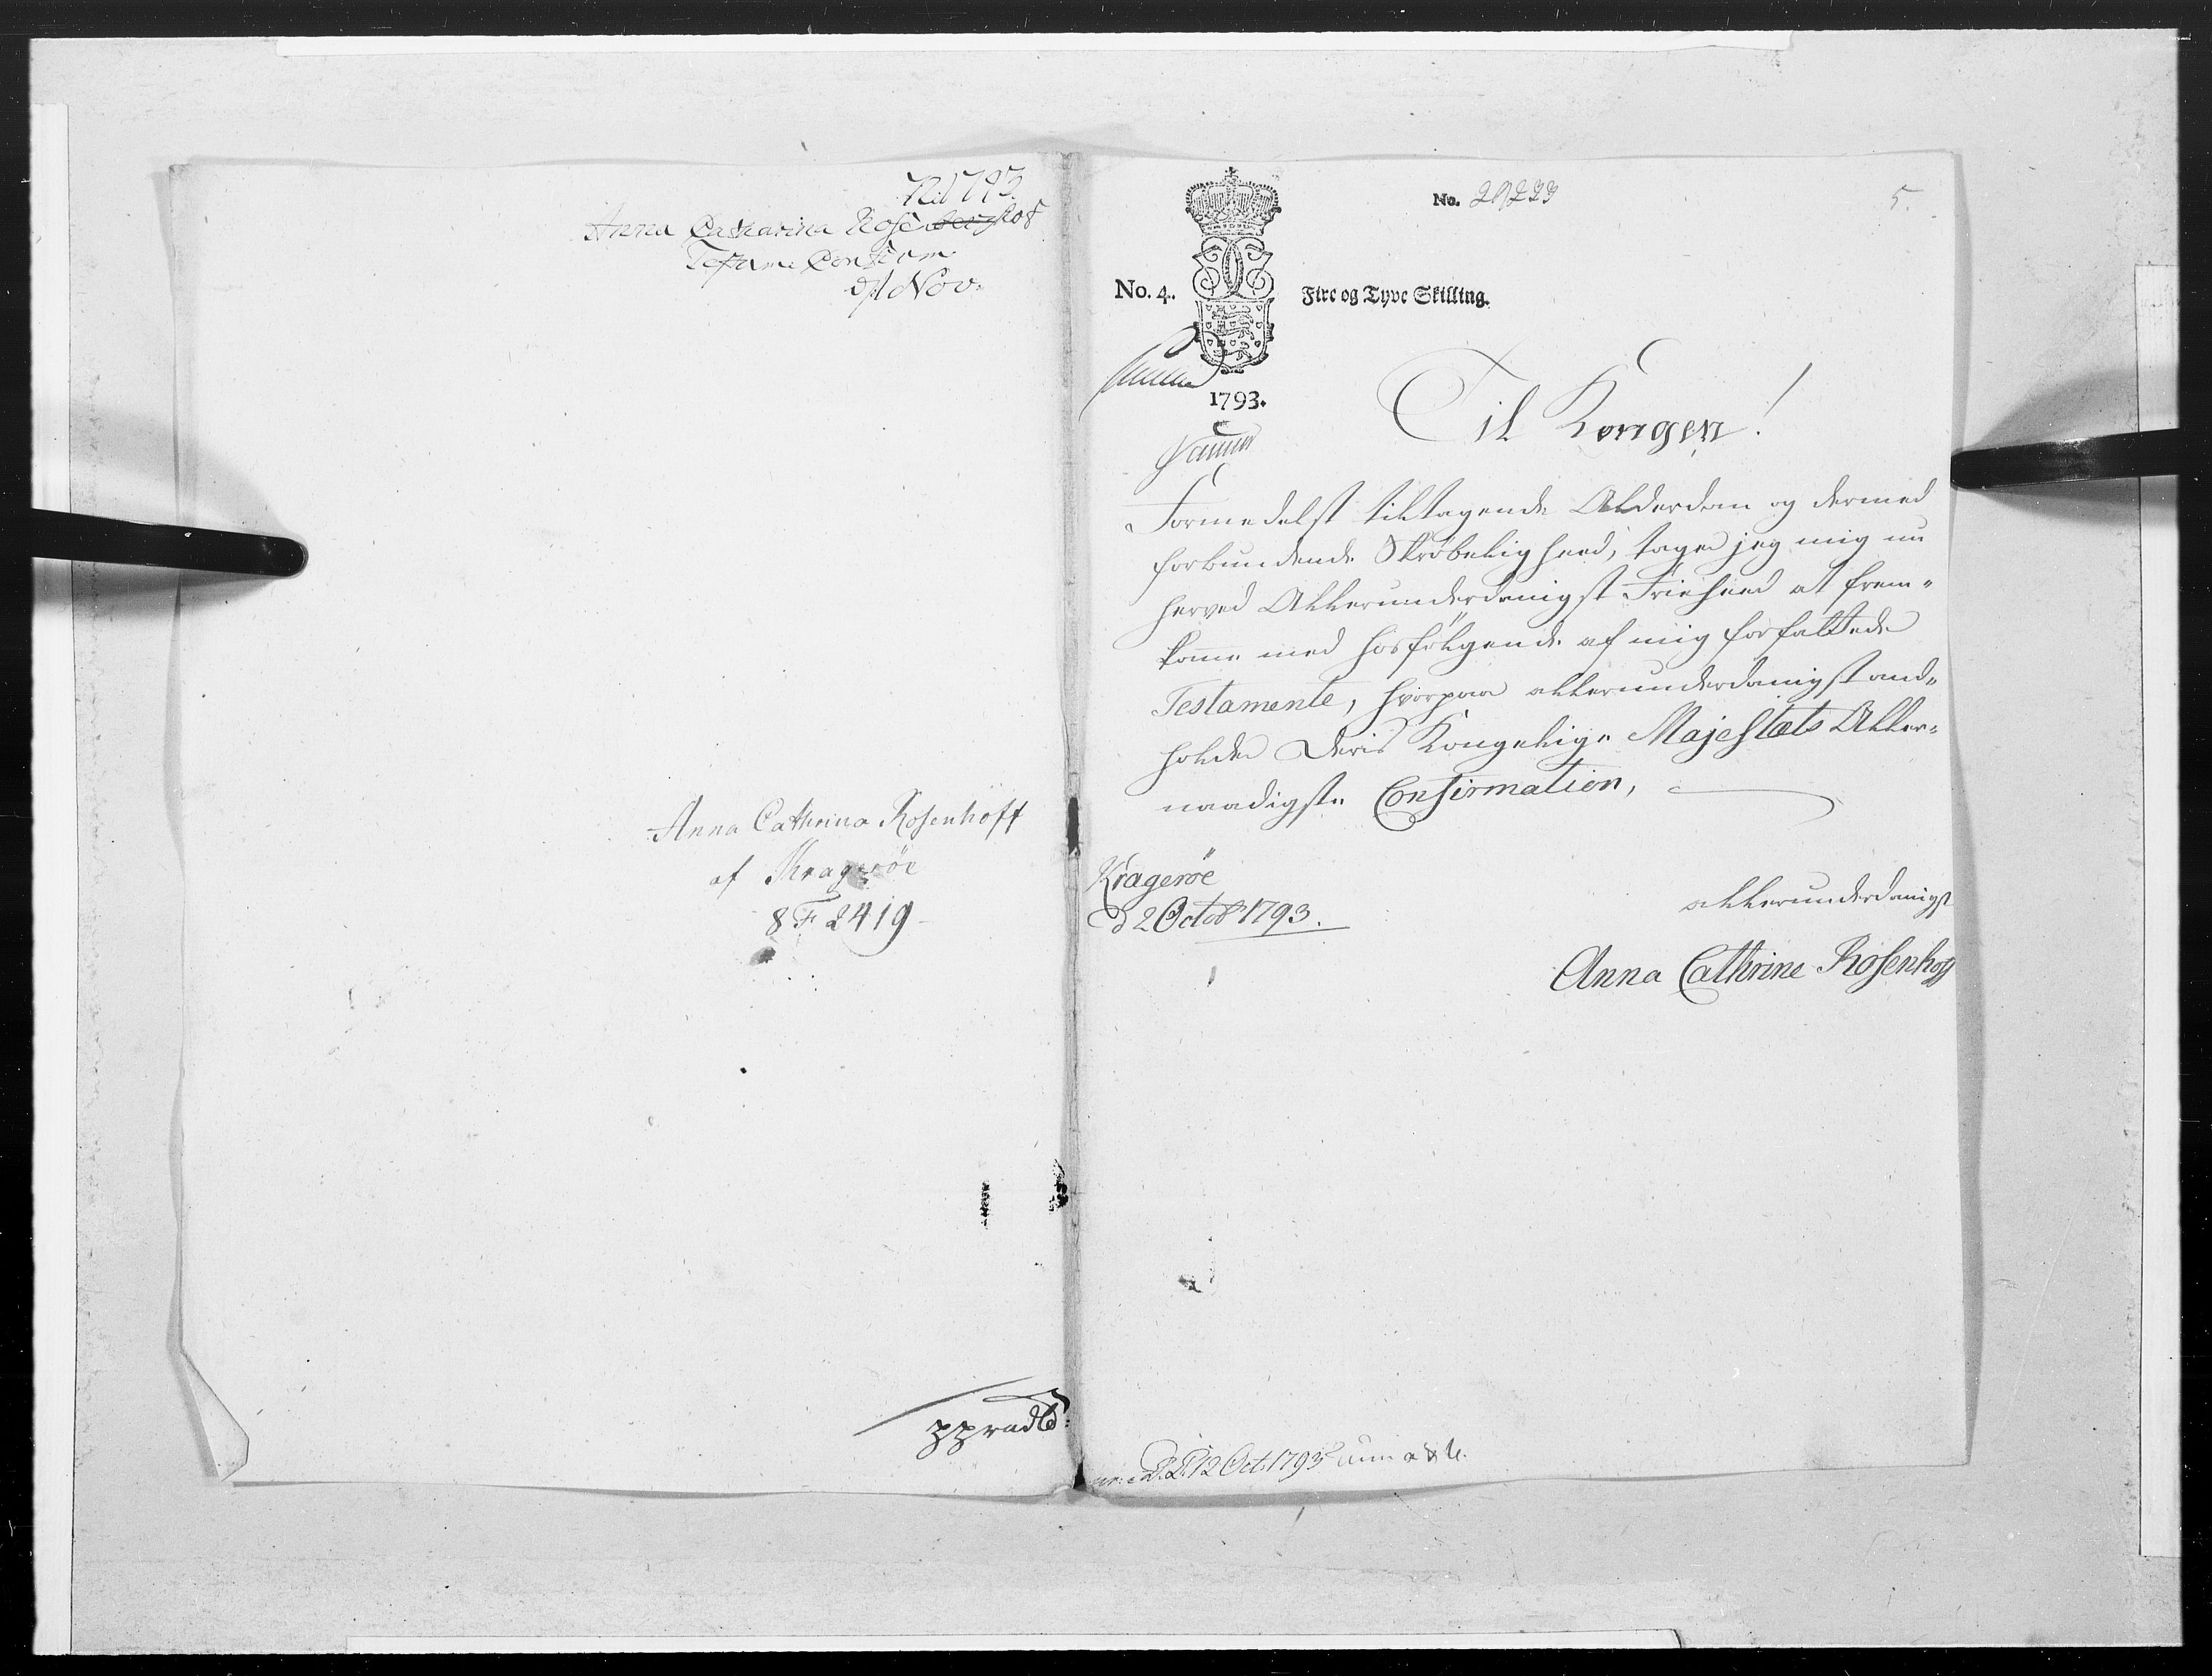 Anna Catharina Rosenberghof
Testam: Confirm
d 1 Nov:
Anna Cathrina Rosenhoff
af Kragerøe
8 F 2419
No. 20233
5.
No. 4.
Fire og Tyve Skilling.
1793.
Til Kongen!
Formedelst tiltagende Alderdom og dermed
forbundende Skrøbeligheed, tager jeg mig nu
herved Allerunderdanigst Frieheed at frem-
komme med hosfølgende af mig forfattede
Testamente, hvorpaa allerunderdanigst and-
holder Deris Kongelige Majestæts Aller-
naadigste Confirmation,
Kragerøe
d 2 Octobr 1793.
allerunderdanigst
Anna Cathrine Rosenhoff
12 Oct: 1793